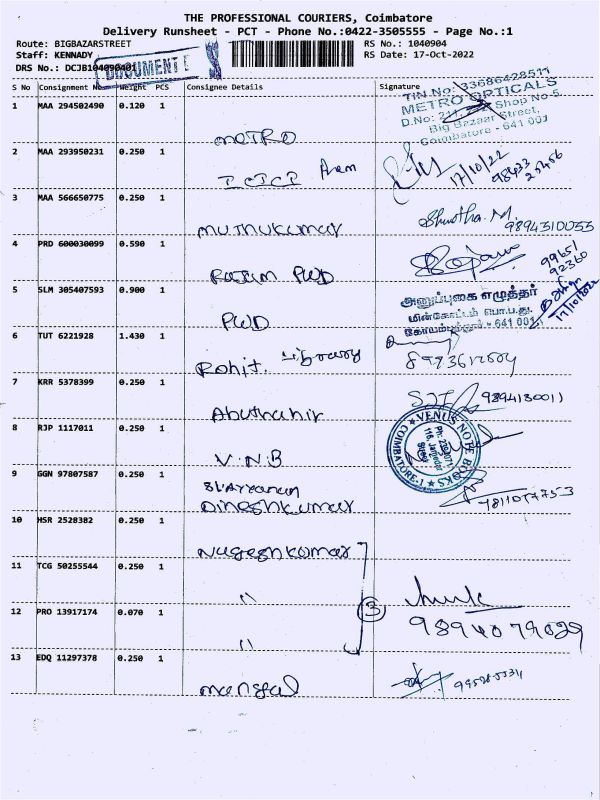 THE PROFESSIONAL COURIERS, Coimbatore
Delivery Runsheet - PCT - Phone No.:0422-3505555 - Page No.:1
Route: BIGBAZARSTREET RS No.: 1040904
Staff: KENNADY RS Date: 17-Oct-2022
DRS No.: DCJB104090401
DOCUMENT
S No Consignment No Weight PCS Consignee Details Signature
TIN.No: 33686428511
METRO OPTICALS
D.No: 211, Shop No-5
Big Bazaar Street,
Coimbatore - 641 001
1 MAA 294502490 0.120 1 METRO
2 MAA 293950231 0.250 1 ICICI 17/10/22 98433 25456
3 MAA 566650775 0.250 1 Muthukumar 9894310055
4 PRD 600030099 0.590 1 PWD 99651 92360
5 SLM 305407593 0.900 1 PWD 17/10/2022
அனுப்புகை எழுத்தர்
மின்கோட்டம் பொ.ப.து.
கோயம்புத்தூர் - 641 001
6 TUT 6221928 1.430 1 Rohit. Library
7 KRR 5378399 0.250 1 Abuthahir 9894130011
8 RJP 1117011 0.250 1 V.N.B
VENUS NOTE BOOKS
COIMBATORE-1
9 GGN 97807587 0.250 1 Dineshkumar
10 HSR 2528382 0.250 1 Nageshkumar
11 TCG 50255544 0.250 1 "
3
12 PRO 13917174 0.070 1 " 9894079029
13 EDQ 11297378 0.250 1 Mangal